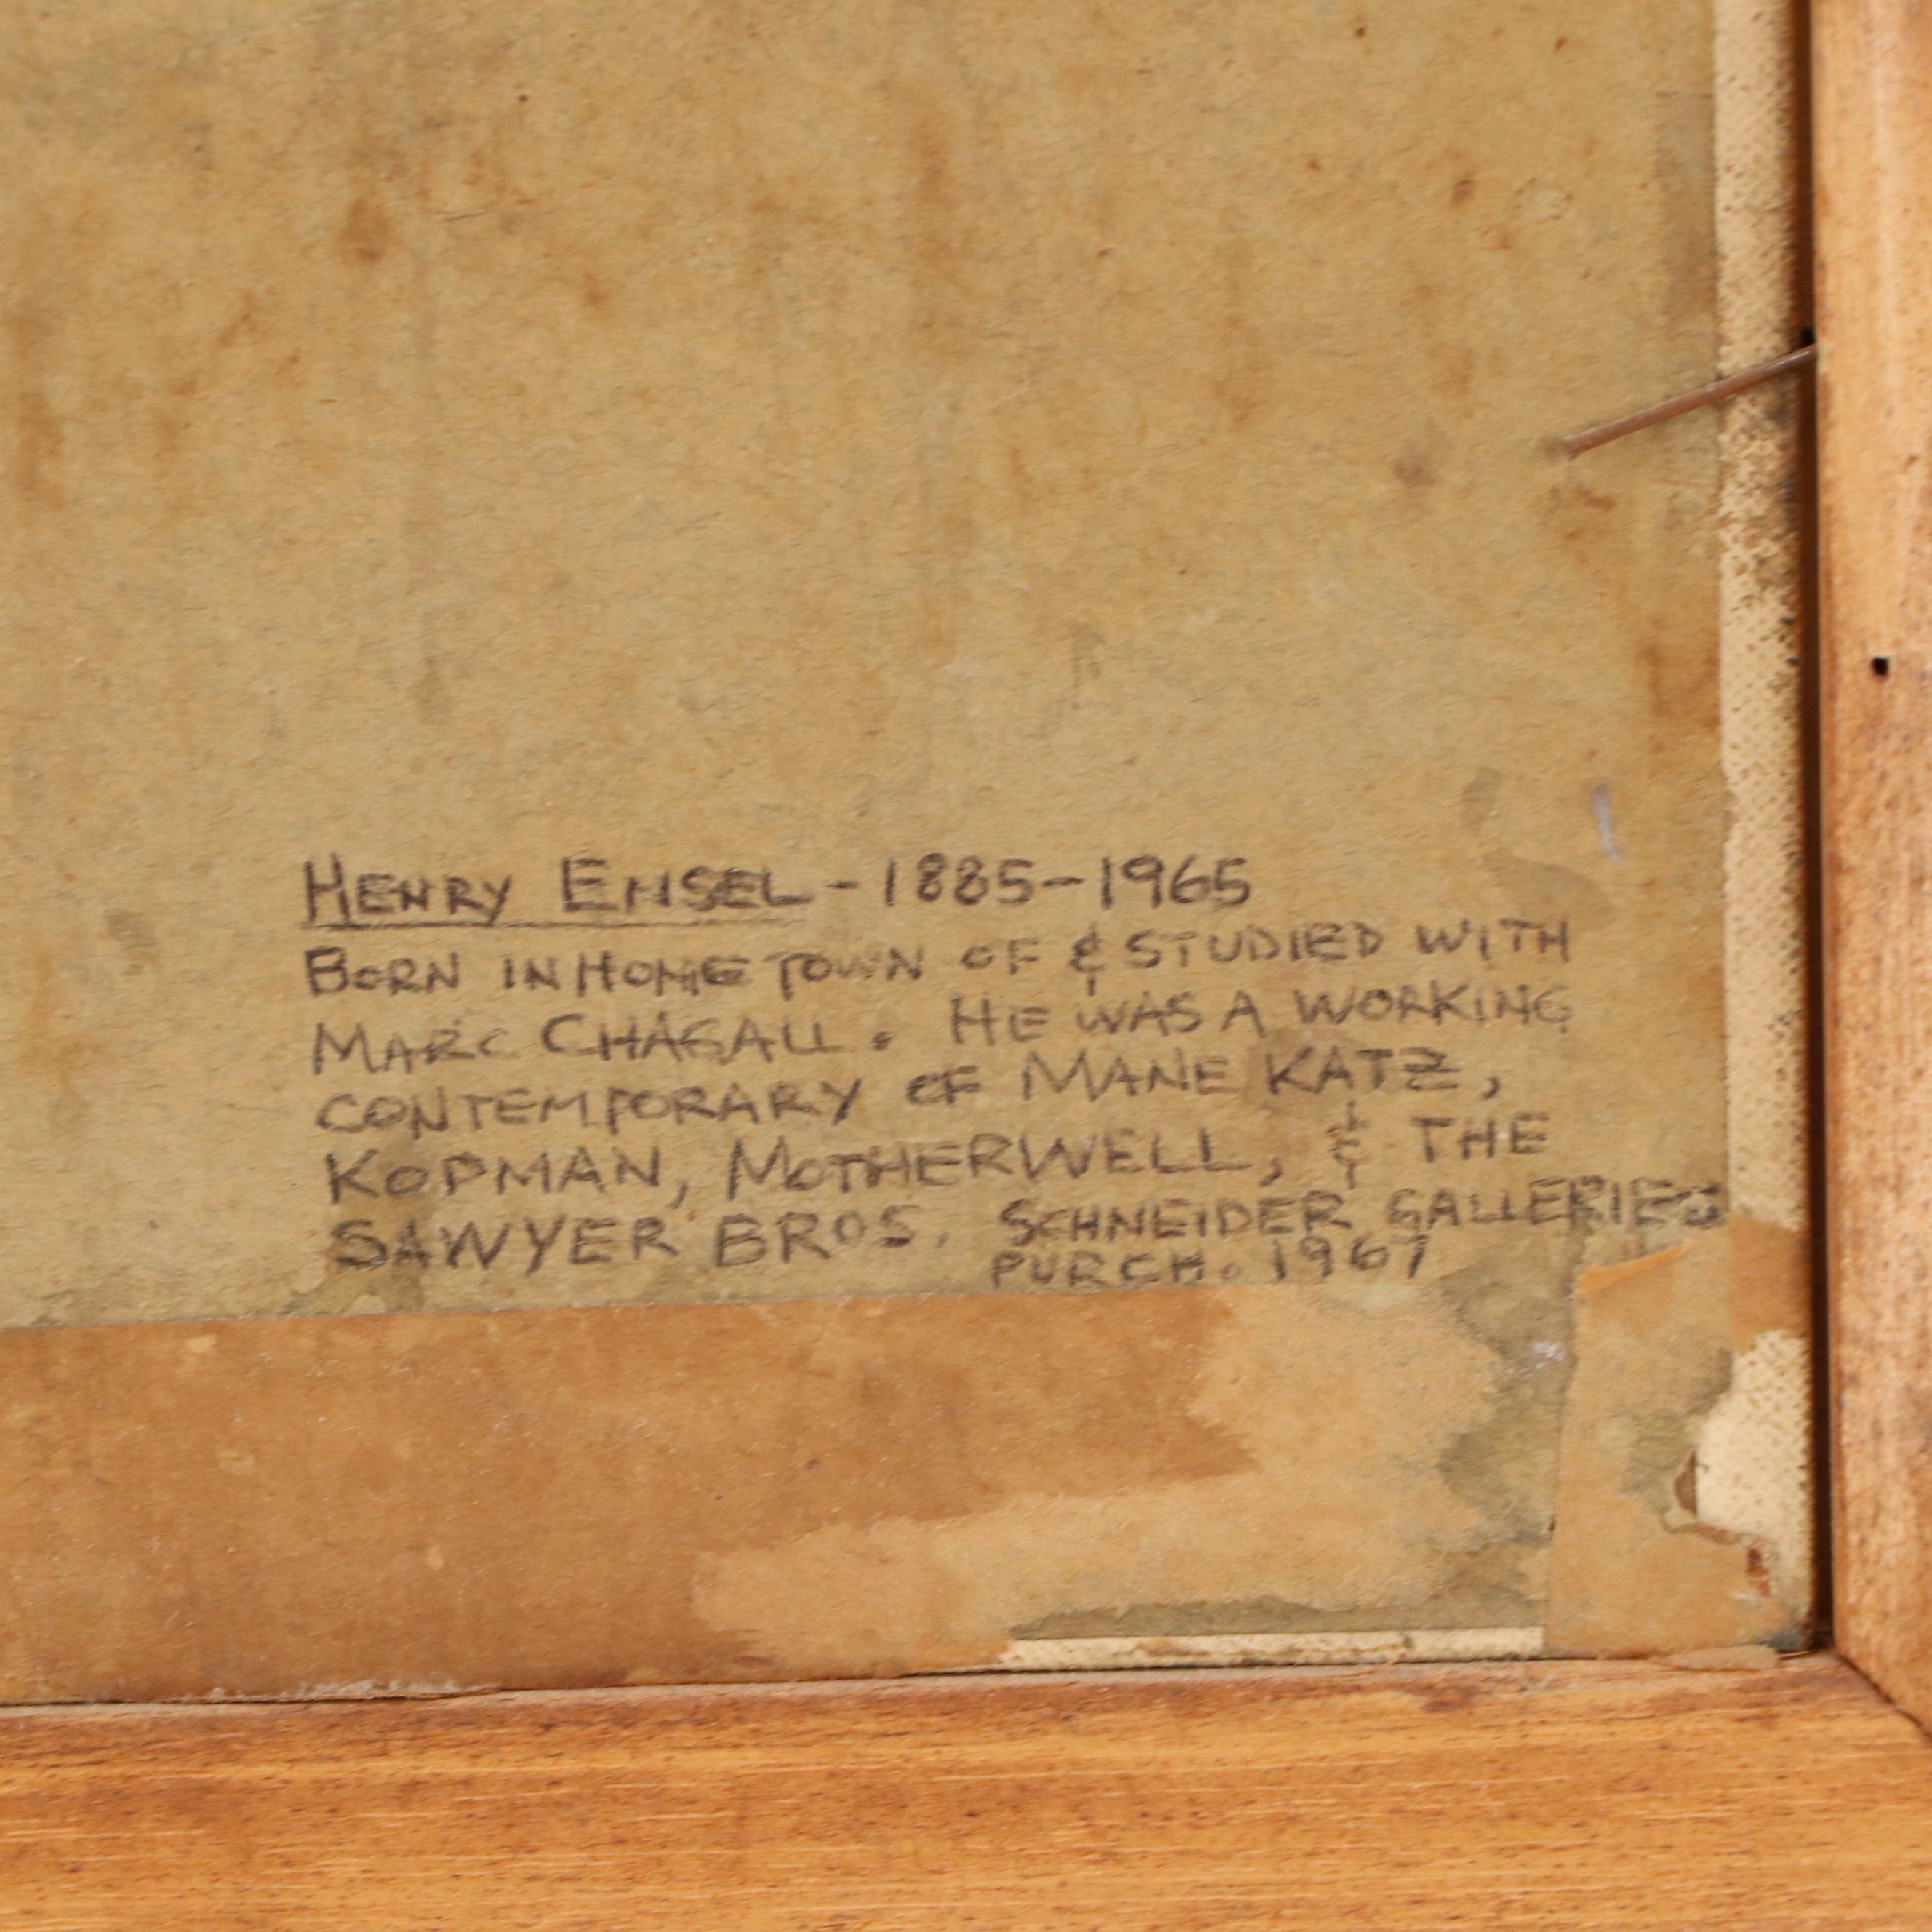 HENRY ENSEL - 1885-1965
BORN IN HOME TOWN OF & STUDIED WITH
MARC CHAGALL. HE WAS A WORKING
CONTEMPORARY OF MANE KATZ,
KOPMAN, MOTHERWELL, & THE
SAWYER BROS. SCHNEIDER GALLERIES
PURCH. 1967